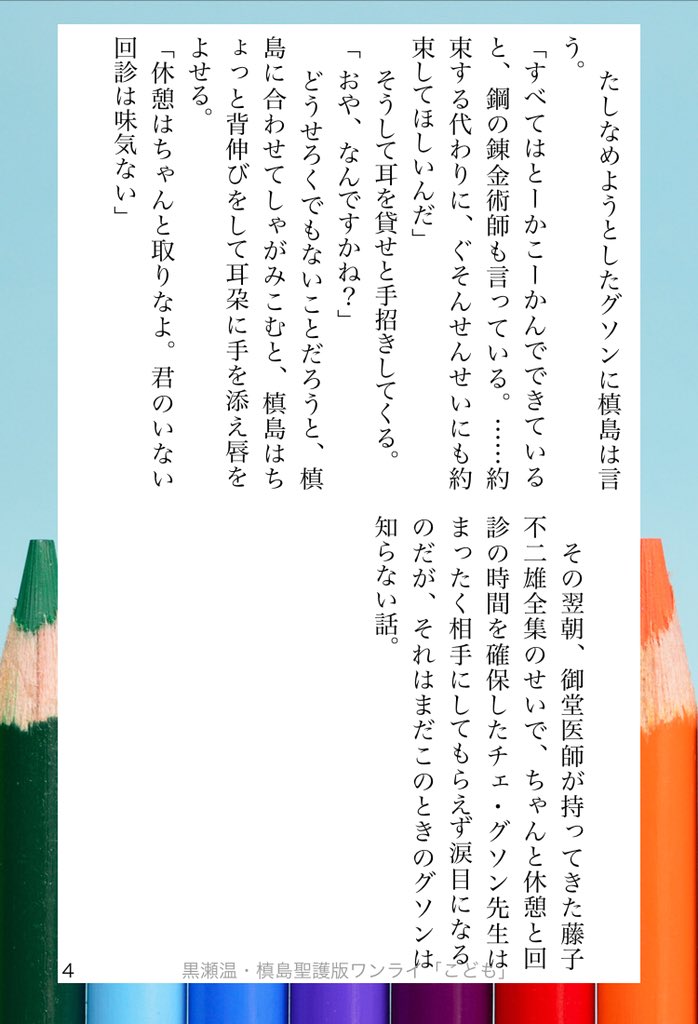 たしなめようとしたグソンに槙島は言
う。
「すべてはとーかこーかんでできている
と、鋼の錬金術師も言っている。……約
束する代わりに、ぐそんせんせいにも約
束してほしいんだ」
　そうして耳を貸せと手招きしてくる。
「おや、なんですかね？」
　どうせろくでもないことだろうと、槙
島に合わせてしゃがみこむと、槙島はち
ょっと背伸びをして耳朶に手を添え唇を
よせる。
「休憩はちゃんと取りなよ。君のいない
回診は味気ない」
　その翌朝、御堂医師が持ってきた藤子
不二雄全集のせいで、ちゃんと休憩と回
診の時間を確保したチェ・グソン先生は
まったく相手にしてもらえず涙目になる
のだが、それはまだこのときのグソンは
知らない話。
4
黒瀬温・槙島聖護版ワンライ「こども」